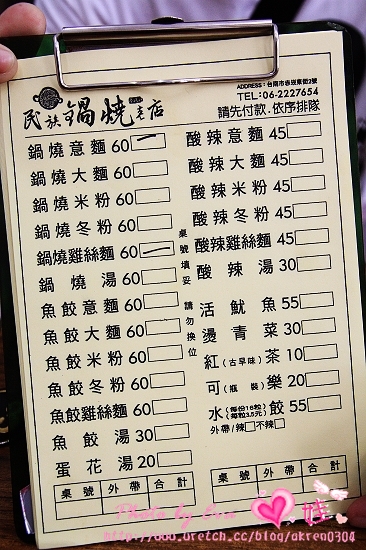 民族鍋燒老店
ADDRESS:台南市赤崁東街2號
TEL:06-2227654
請先付款.依序排隊
鍋燒意麵 60
鍋燒大麵 60
鍋燒米粉 60
鍋燒冬粉 60
鍋燒雞絲麵 60
鍋燒湯 60
魚餃意麵 60
魚餃大麵 60
魚餃米粉 60
魚餃冬粉 60
魚餃雞絲麵 60
魚餃湯 30
蛋花湯 20
桌號 外帶 合計
桌號填妥 請勿換位
酸辣意麵 45
酸辣大麵 45
酸辣米粉 45
酸辣冬粉 45
酸辣雞絲麵 45
酸辣湯 30
活魷魚 55
燙青菜 30
紅(古早味)茶 10
可(瓶裝)樂 20
水(每份16粒)(每粒3.5元)餃 55
外帶/辣 不辣
桌號 外帶 合計
Photo by
http://www.wretch.cc/blog/akren0304